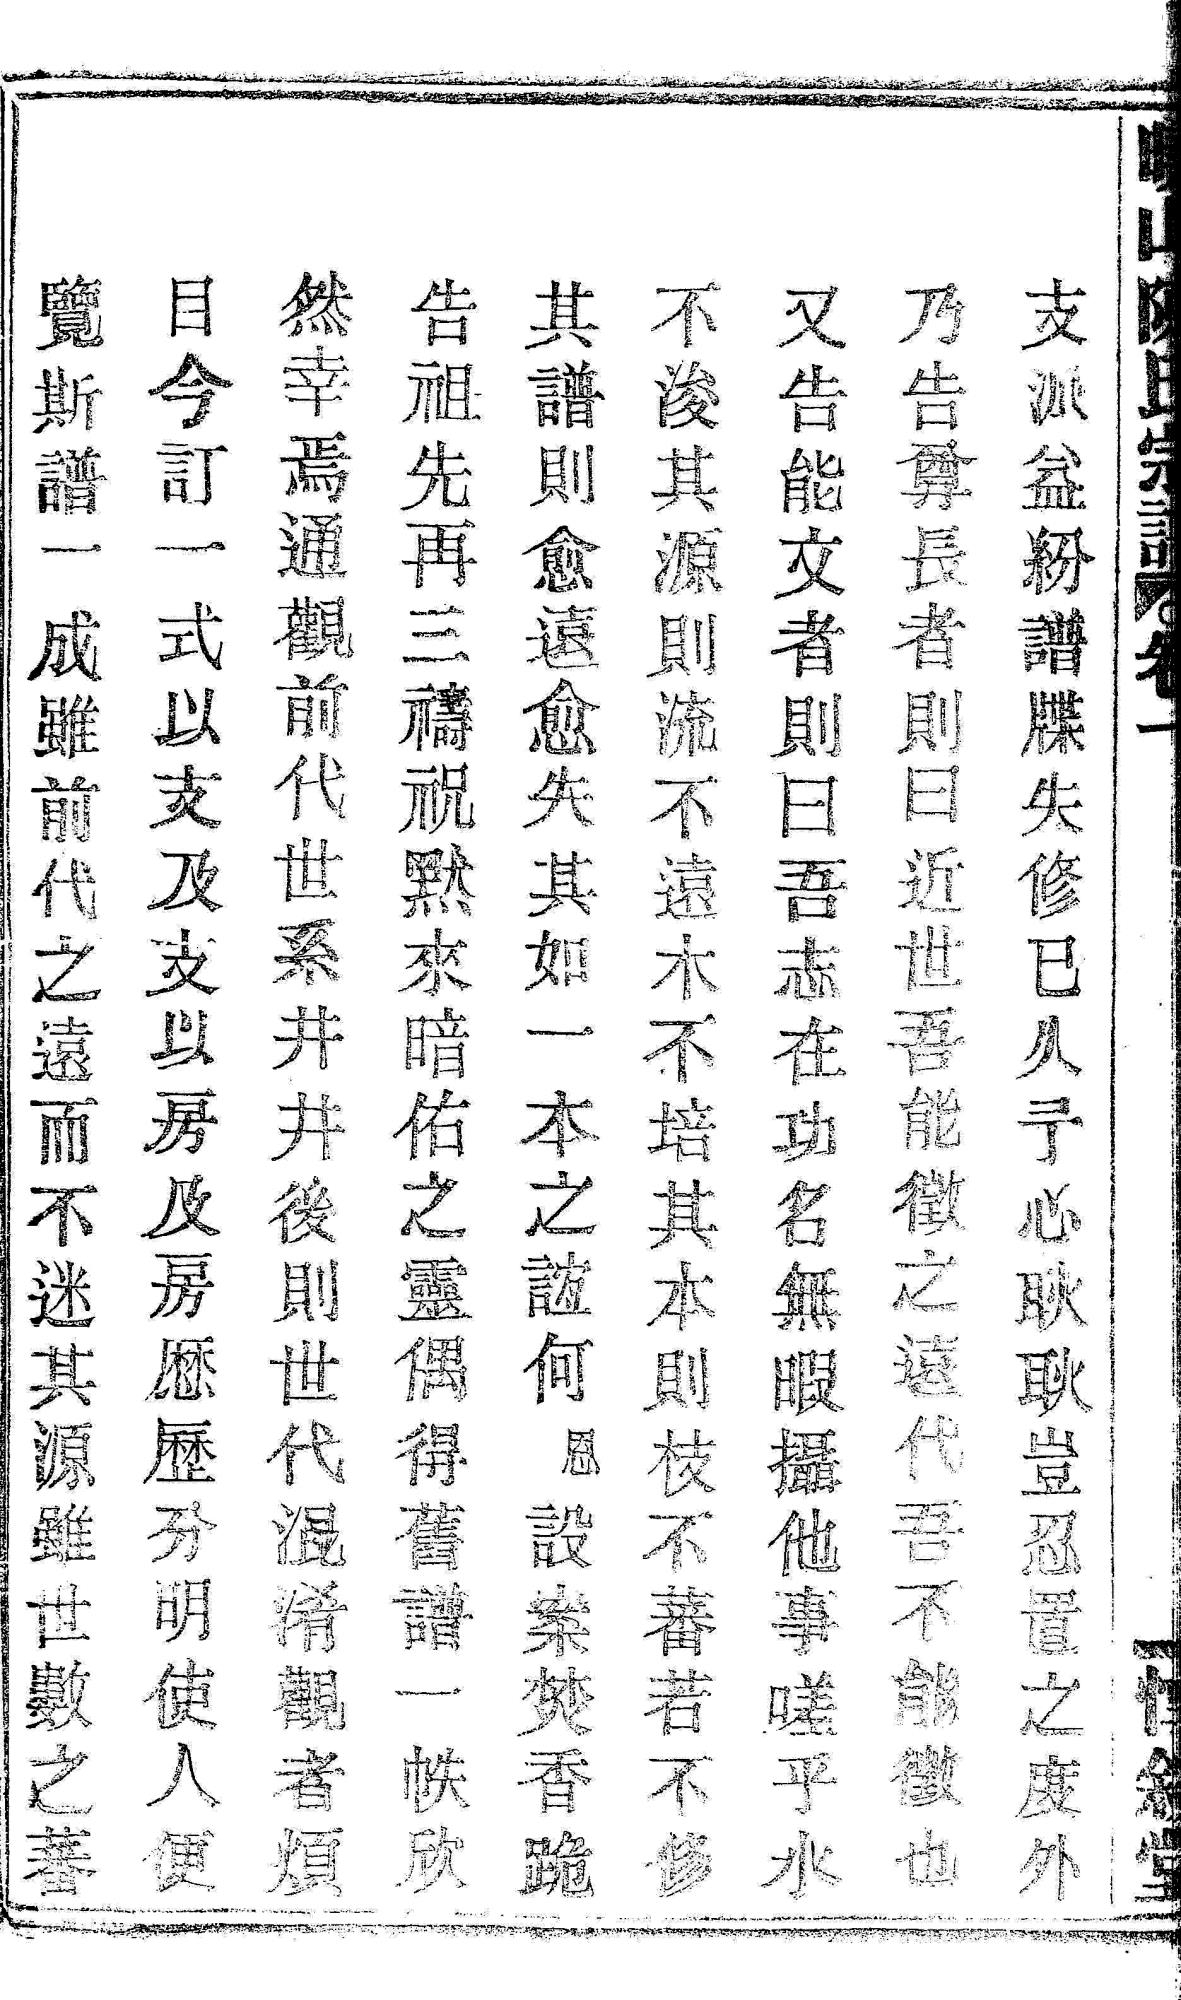 山陳氏宗譜 卷一 惇敘堂
支派益紛譜牒失修已久予心耿耿豈忍置之度外
乃告尊長者則曰近世吾能徵之遠代吾不能徵也
又告能文者則曰吾志在功名無暇攝他事嗟乎水
不浚其源則流不遠木不培其本則枝不蕃若不修
其譜則愈遠愈失其如一本之誼何恩設案焚香跪
告祖先再三禱祝默來暗佑之靈偶得舊譜一帙欣
然幸焉通觀前代世系井井後則世代混淆觀者煩
目今訂一式以支及支以房及房歷歷分明使人便
覽斯譜一成雖前代之遠而不迷其源雖世數之蕃